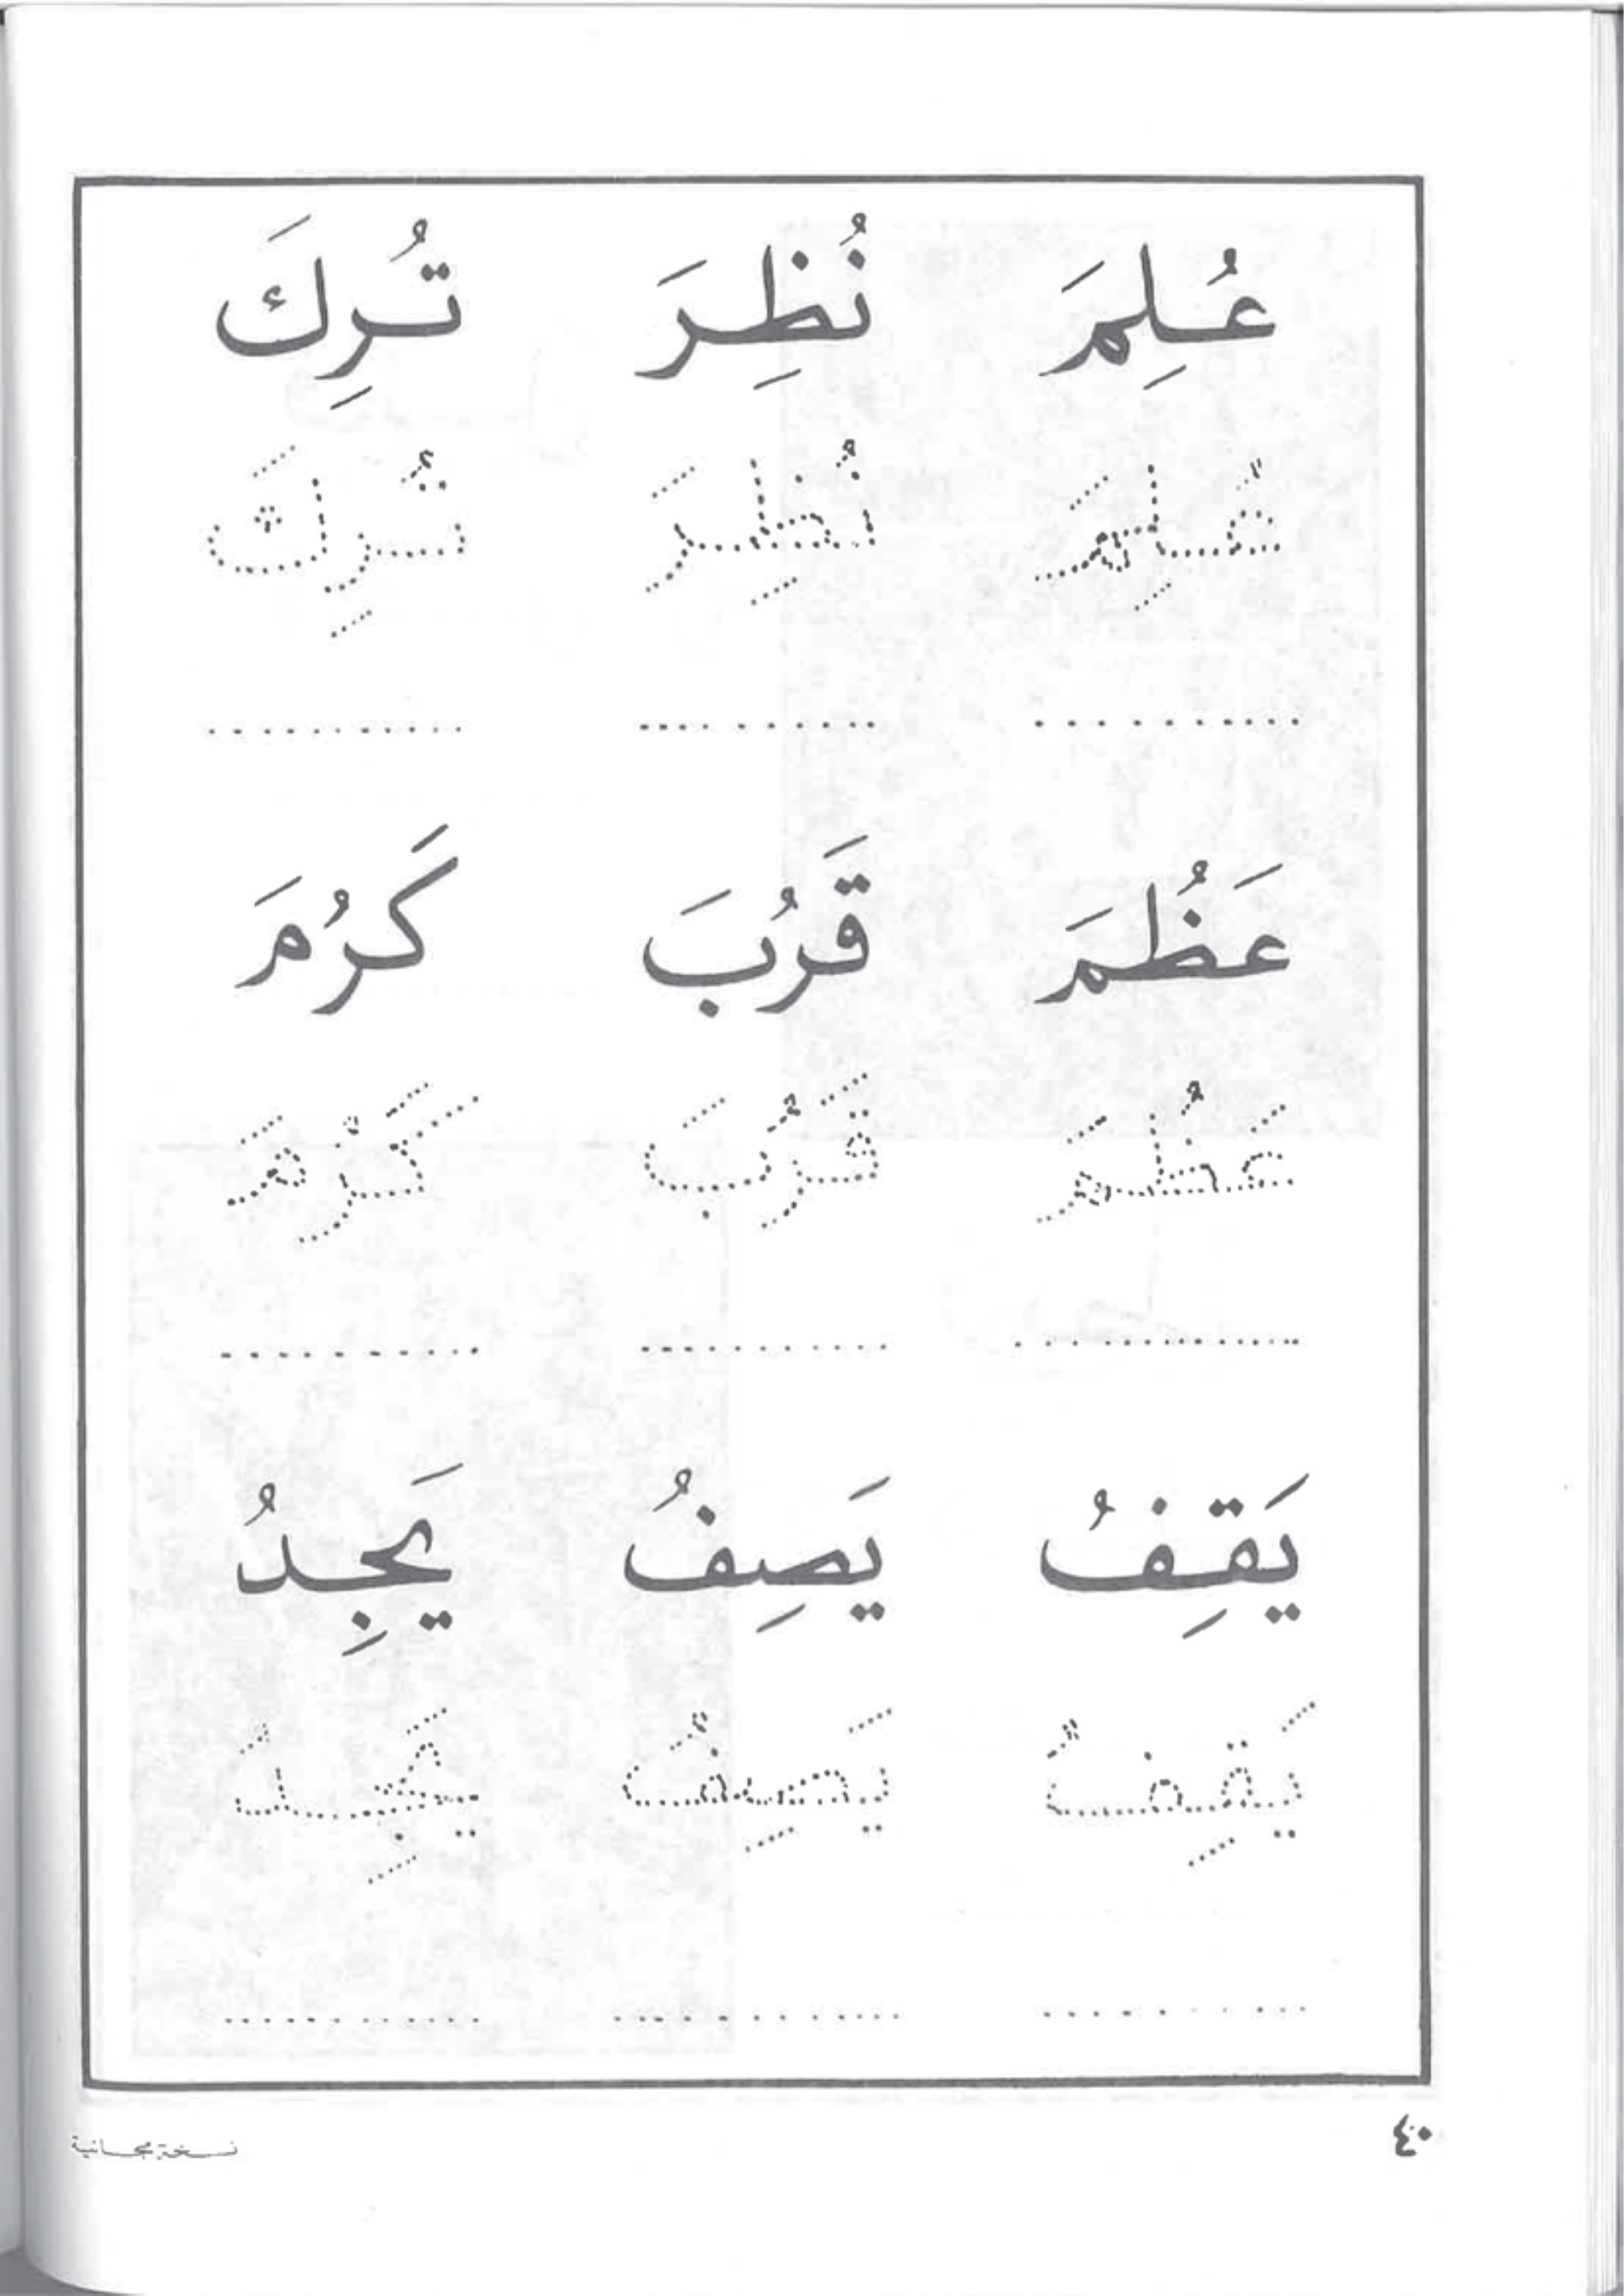 عُلِمَ نُظِرَ تُرِكَ
عُلِمَ نُظِرَ تُرِكَ
عَظُمَ قَرُبَ كَرُمَ
عَظُمَ قَرُبَ كَرُمَ
يَقِفُ يَصِفُ يَجِدُ
يَقِفُ يَصِفُ يَجِدُ
٤٠ نسخة مجانية